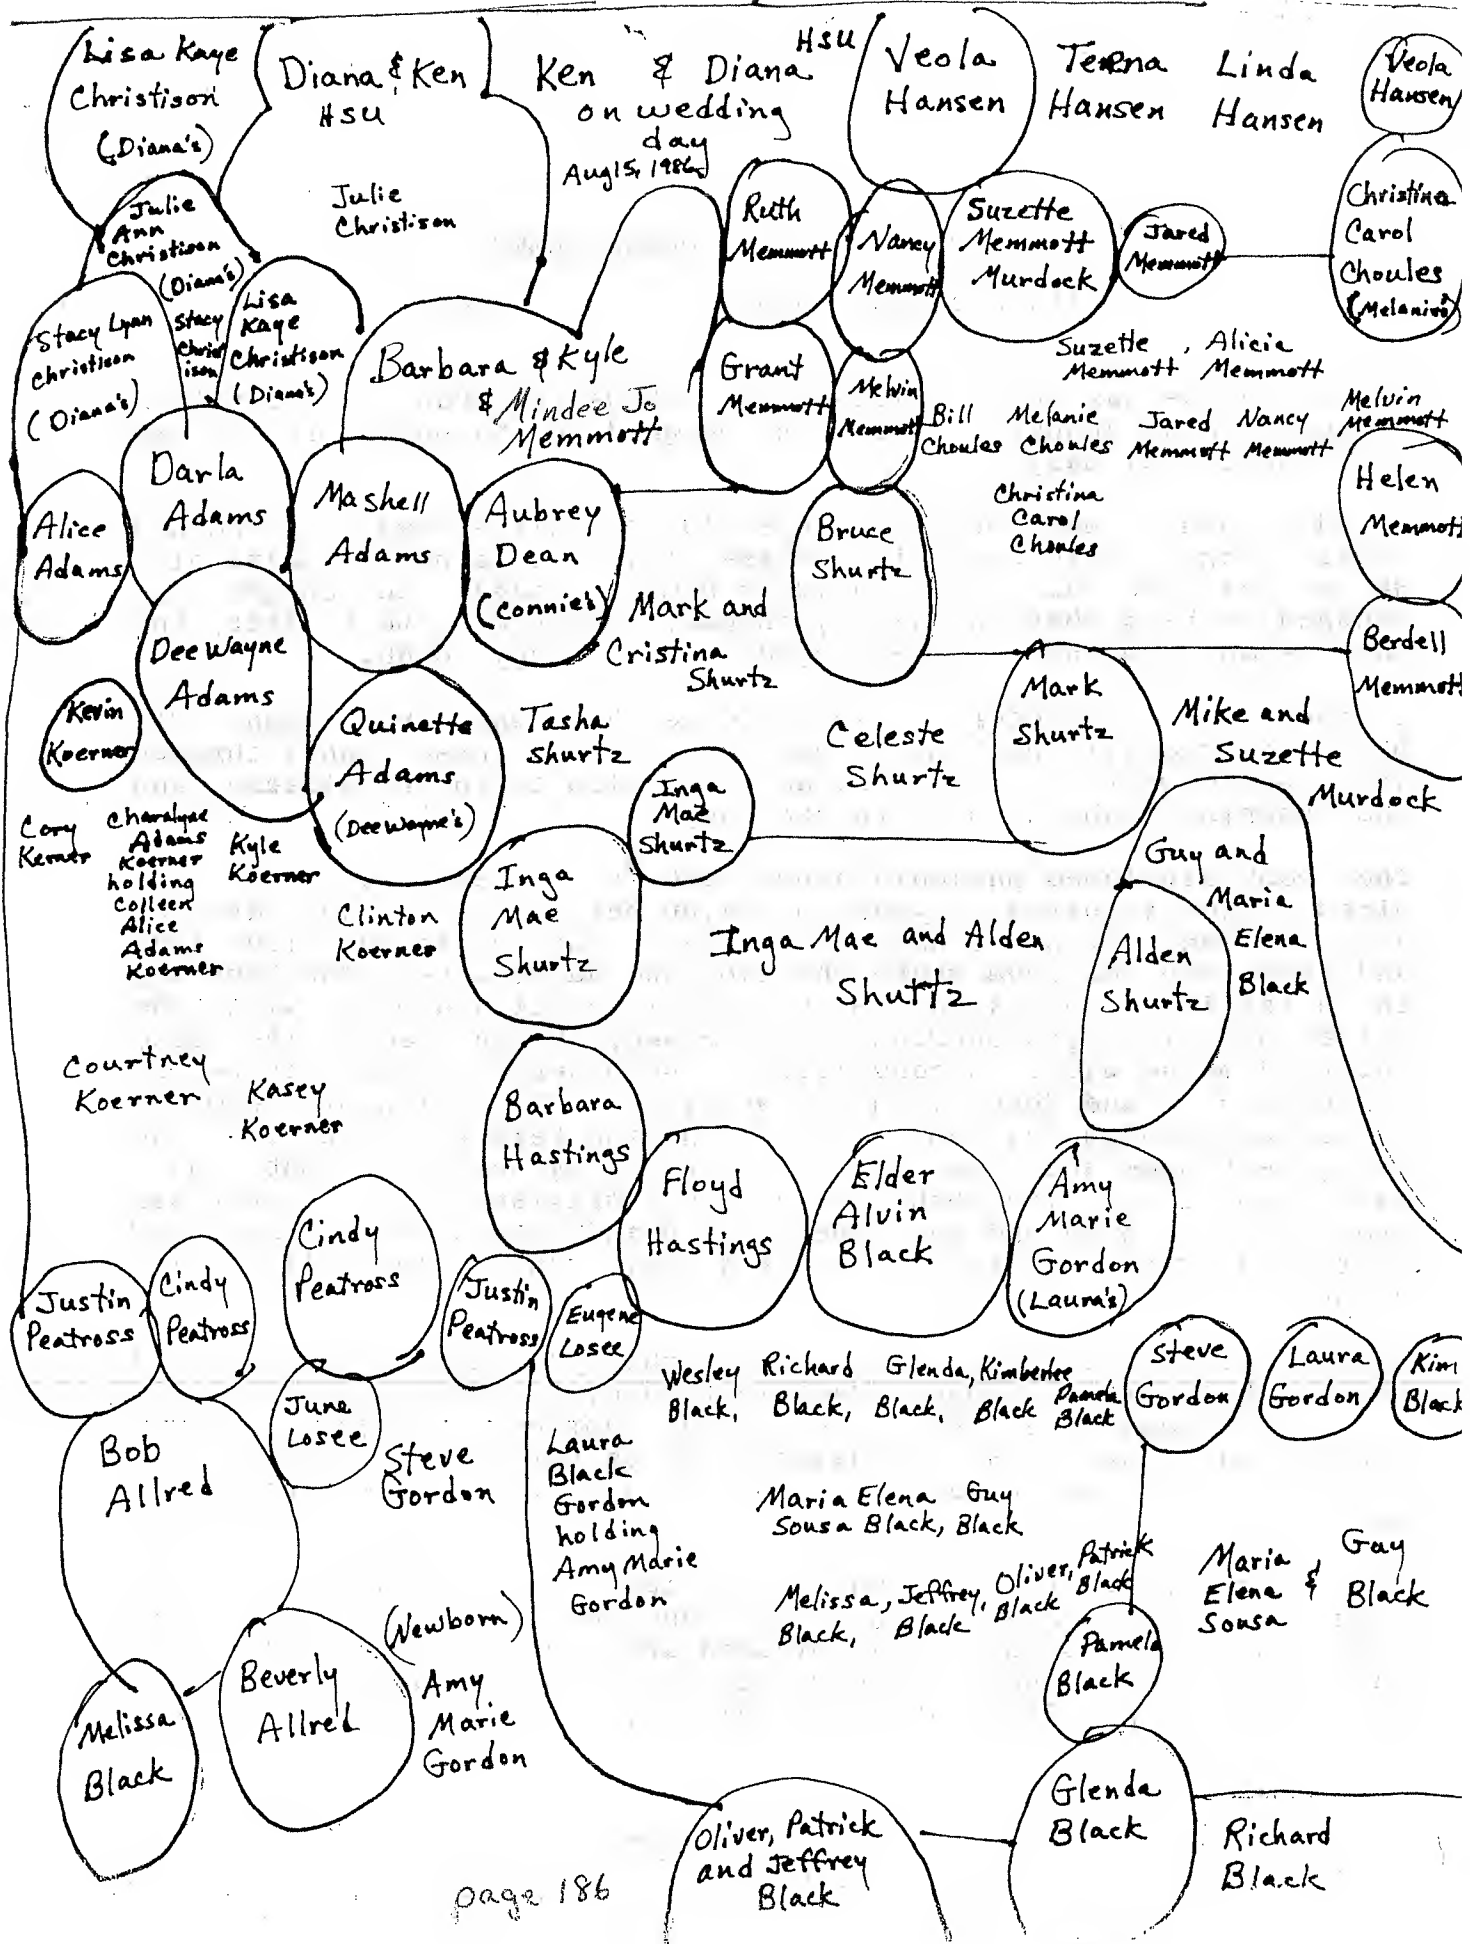 Lisa Kaye
Christison
(Diana's)
Diana & Ken
HSU
Ken & Diana HSU
on wedding
day
Aug 15, 1986
Veola
Hansen
Terena
Hansen
Linda
Hansen
Veola
Hansen
Julie
Ann
Christison
(Diana's)
Julie
Christison
Ruth
Memmott
Nancy
Memmott
Suzette
Memmott
Murdock
Jared
Memmott
Christina
Carol
Choules
(Melanie's)
Stacy Lynn
Christison
(Diana's)
Stacy
Christ
ison
Lisa
Kaye
Christison
(Diana's)
Barbara & Kyle
& Mindee Jo
Memmott
Grant
Memmott
Melvin
Memmott
Suzette
Memmott
, Alicia
Memmott
Bill
Choules
Melanie
Choules
Jared
Memmott
Nancy
Memmott
Melvin
Memmott
Christina
Carol
Choules
Helen
Memmott
Alice
Adams
Darla
Adams
Mashell
Adams
Aubrey
Dean
(Connie's)
Bruce
Shurtz
Mark and
Cristina
Shurtz
Dee Wayne
Adams
Kevin
Koerner
Quinette
Adams
(DeeWayne's)
Tasha
Shurtz
Inga
Mae
Shurtz
Celeste
Shurtz
Mark
Shurtz
Mike and
Suzette
Murdock
Berdell
Memmott
Cory
Kerner
Charalyne
Adams
Koerner
holding
Colleen
Alice
Adams
Koerner
Kyle
Koerner
Clinton
Koerner
Inga
Mae
Shurtz
Inga Mae and Alden
Shurtz
Guy and
Maria
Elena
Black
Alden
Shurtz
Courtney
Koerner
Kasey
Koerner
Barbara
Hastings
Floyd
Hastings
Elder
Alvin
Black
Amy
Marie
Gordon
(Laura's)
Justin
Peatross
Cindy
Peatross
Cindy
Peatross
Justin
Peatross
Eugene
Losee
Wesley
Black,
Richard
Black,
Glenda,
Black,
Kimberlee
Black
Pamela
Black
Steve
Gordon
Laura
Gordon
Kim
Black
Bob
Allred
June
Losee
Steve
Gordon
Laura
Black
Gordon
holding
Amy Marie
Gordon
Maria Elena
Sousa Black,
Guy
Black
Melissa,
Black,
Jeffrey,
Black
Oliver,
Black
Patrick
Black
Maria
Elena
Sousa
&
Guy
Black
Melissa
Black
Beverly
Allred
(Newborn)
Amy
Marie
Gordon
Pamela
Black
Glenda
Black
Oliver, Patrick
and Jeffrey
Black
Richard
Black
page 186